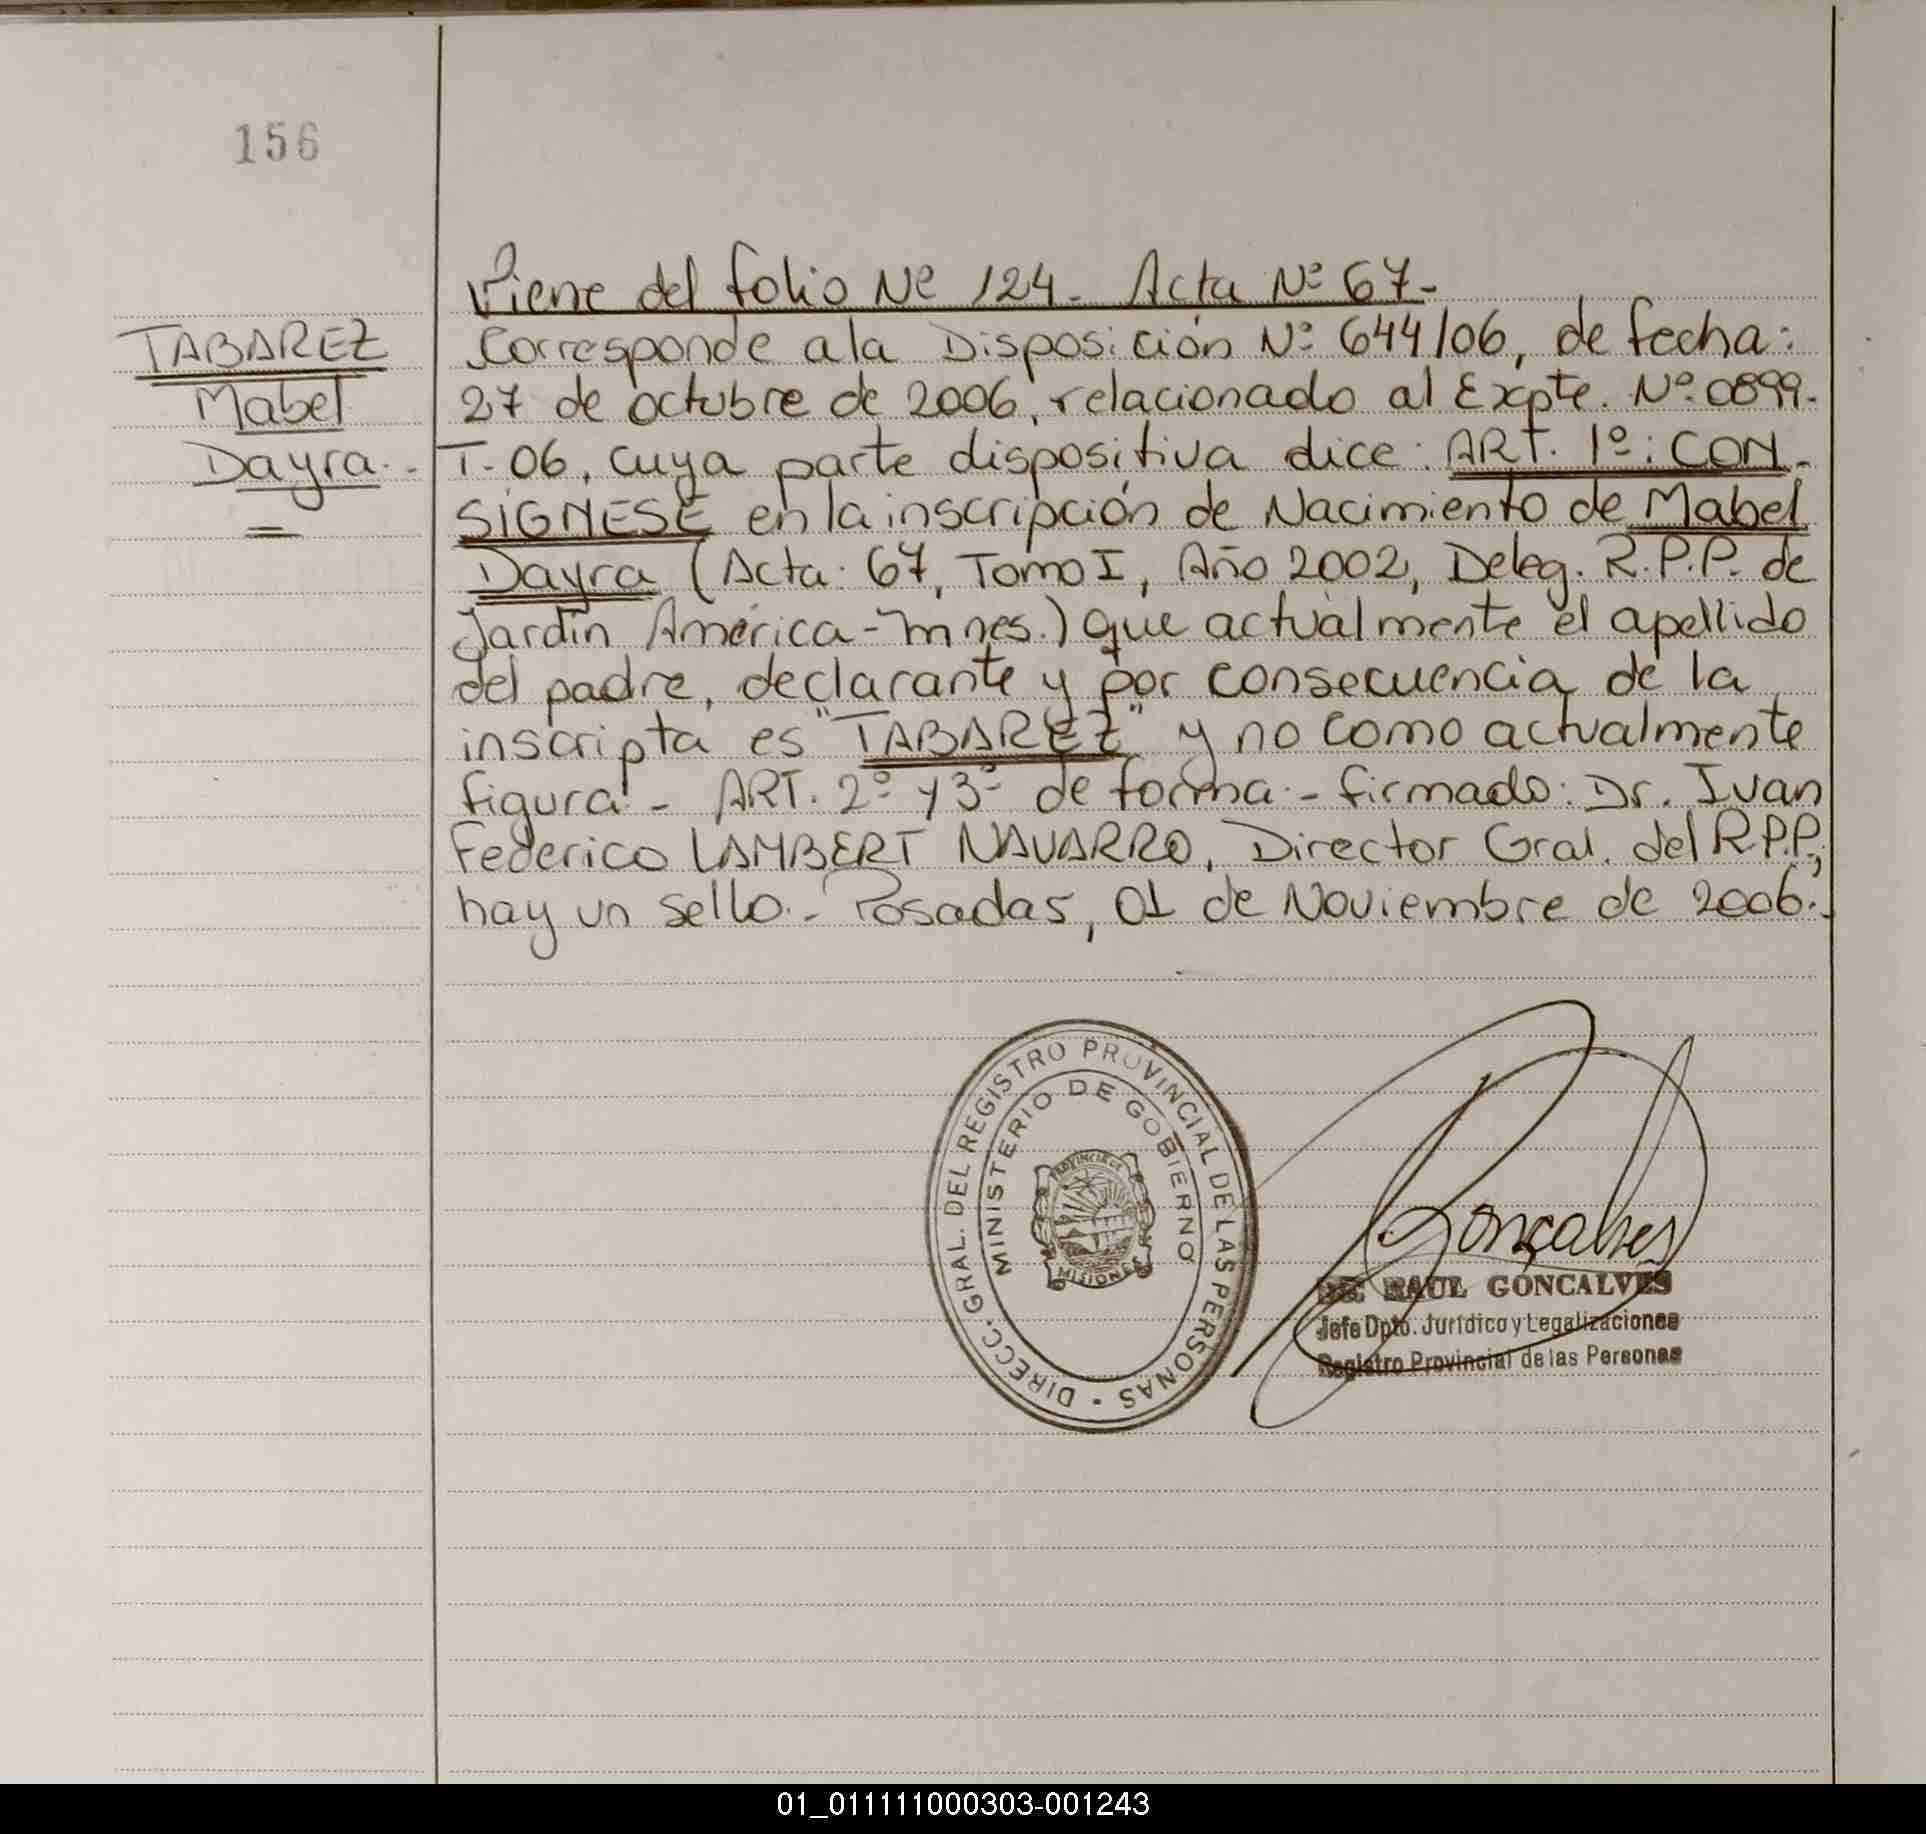 156
TABAREZ
Mabel
Dayra.-
Viene del folio Nº 124- Acta Nº 67-
Corresponde a la Disposición Nº 644/06, de fecha:
27 de octubre de 2006, relacionado al Expte. Nº 0899-
T-06, cuya parte dispositiva dice: ART. 1º: CON-
SIGNESE en la inscripción de Nacimiento de Mabel
Dayra (Acta: 67, Tomo I, Año 2002, Deleg. R.P.P. de
Jardín América-Mnes.) que actualmente el apellido
del padre, declarante y por consecuencia de la
inscripta es "TABAREZ" y no como actualmente
figura.- ART. 2º y 3º de forma.- firmado: Dr. Ivan
Federico LAMBERT NAVARRO, Director Gral. del R.P.P.,
hay un sello.- Posadas, 01 de Noviembre de 2006.-
DIRECC. GRAL. DEL REGISTRO PROVINCIAL DE LAS PERSONAS
MINISTERIO DE GOBIERNO
PROVINCIA DE
MISIONES
Gonçalves
DR. RAUL GONCALVES
Jefe Dpto. Jurídico y Legalizaciones
Registro Provincial de las Personas
01_011111000303-001243